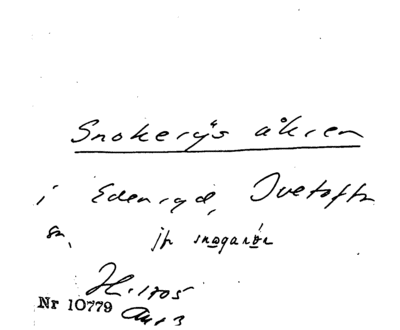 Snokeryds åkren
i Edenryd, Ivetofta
sn, jfr snogarör
H. 1705
Nr 10779